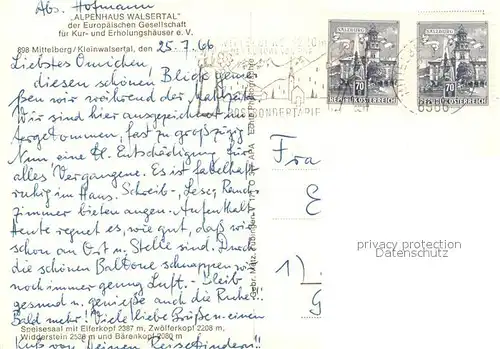 Abs. Hofmann
„ALPENHAUS WALSERTAL"
der Europäischen Gesellschaft
für Kur- und Erholungshäuser e. V.
898 Mittelberg / Kleinwalsertal, den 25.7.66
Liebstes Omichen,
diesen schönen Blick genie-
ßen wir während der Mahlzeiten.
Wir sind hier ausgezeichnet un-
tergekommen, fast zu großzügig.
Nun, eine kl. Entschädigung für
alles Vergangene. Es ist fabelhaft
ruhig im Haus. Schreib-, Lese, Rauch-
zimmer bieten angen. Aufenthalt.
Heute regnet es, wie gut, daß wir
schon an Ort u. Stelle sind. Durch
die schönen Balkone schnappen wir
noch immer genug Luft. – Bleib
gesund u. genieße auch die Ruhe.
Bald mehr! Viele liebe Grüße u. einen
Speisesaal mit Elferkopf 2387 m, Zwölferkopf 2208 m,
Widderstein 2536 m und Bärenkopf 2080 m
Kuß von Deinen Reisekindern!
SALZBURG
70
REPUBLIK ÖSTERREICH
SALZBURG
70
REPUBLIK ÖSTERREICH
SONDERTARIFE
Gebr. Metz, Tübingen
Fra
E
1)
G
privacy protection
Datenschutz